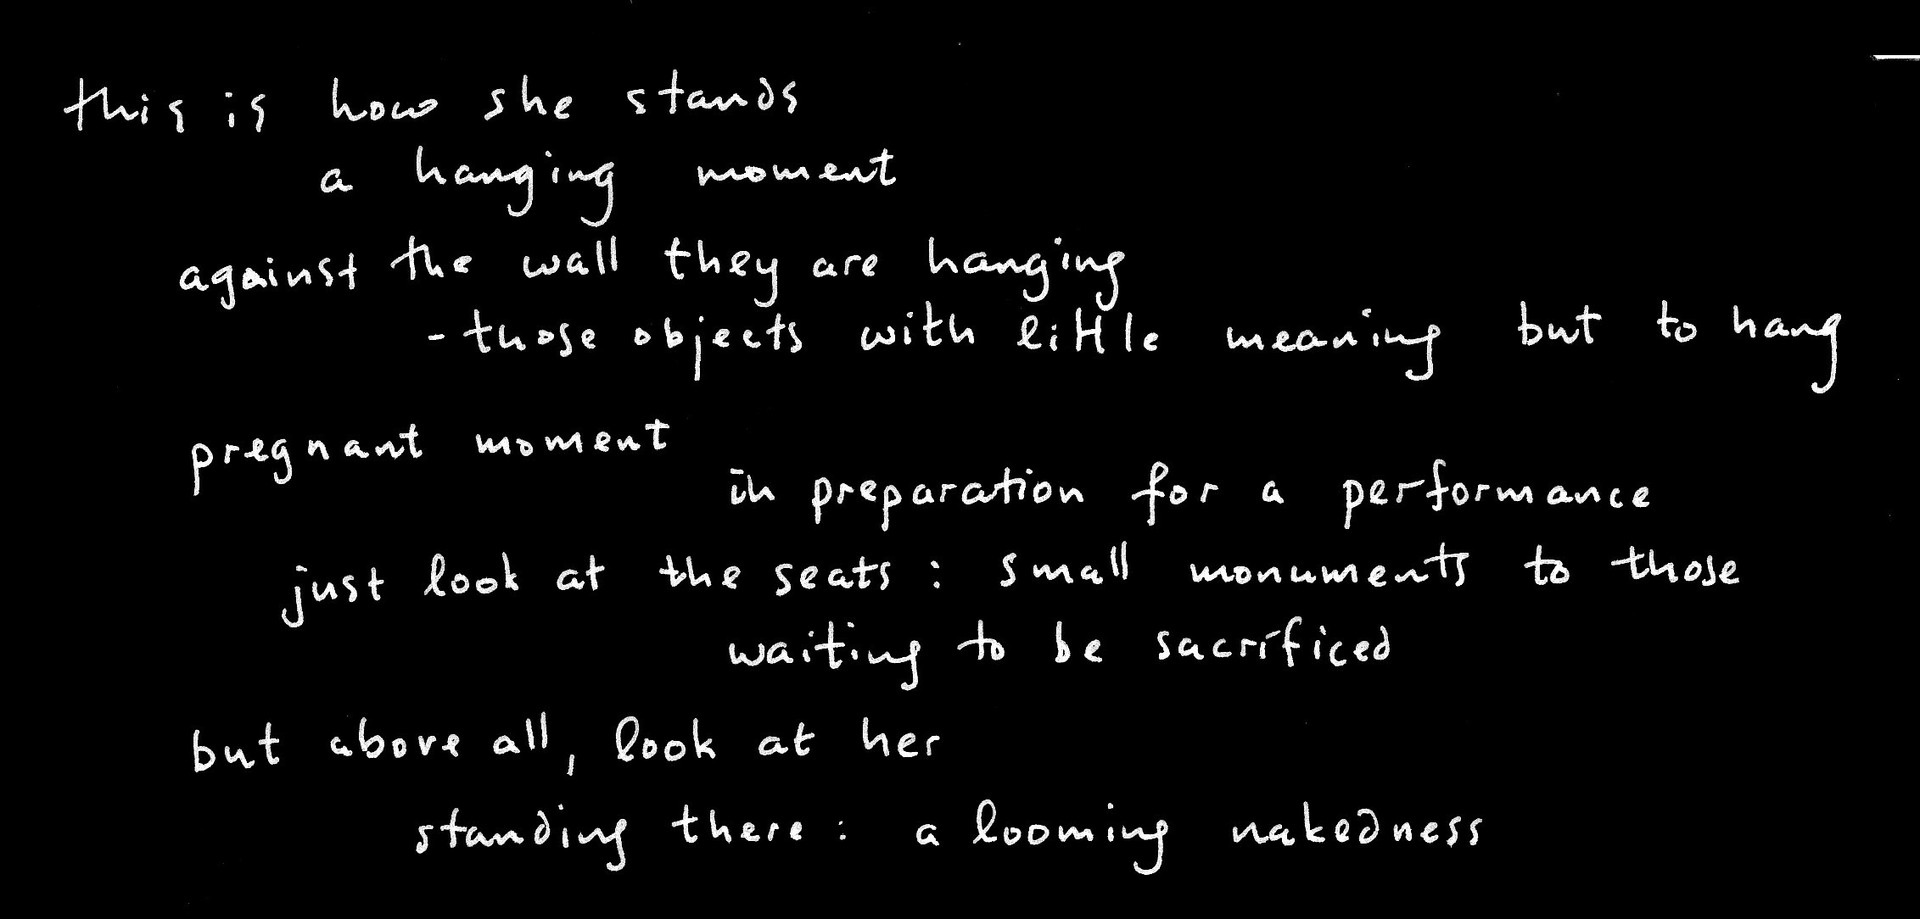 this is how she stands
a hanging moment
against the wall they are hanging
- those objects with little meaning but to hang
pregnant moment
in preparation for a performance
just look at the seats : small monuments to those
waiting to be sacrificed
but above all, look at her
standing there : a looming nakedness